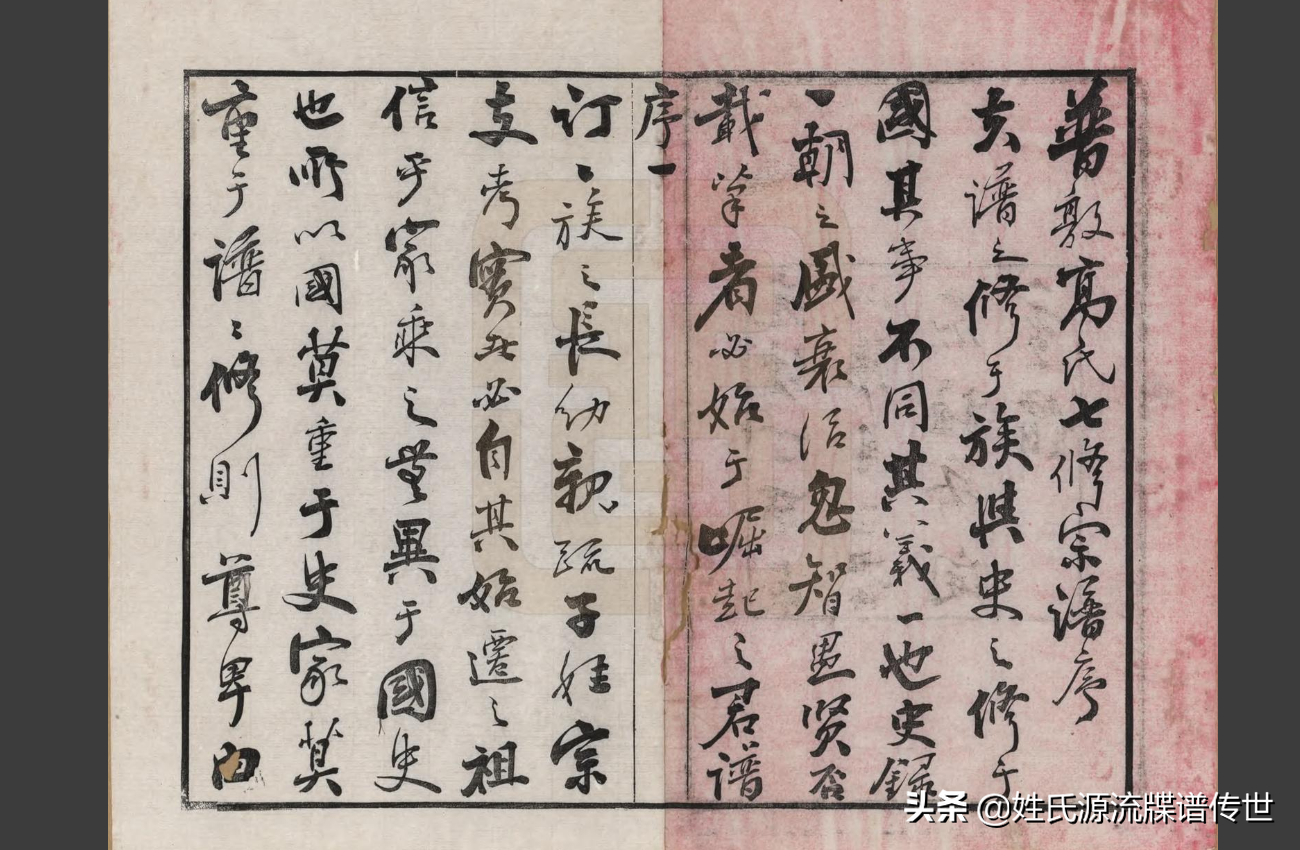 普敦高氏七修宗譜序
夫譜之修于族與史之修于
國其事不同其義一也史録
一朝之盛衰治忽智愚賢否
載筆者必始于崛起之君譜
序一
訂一族之長幼親疏子姓宗
支考實必自其始遷之祖
信乎家乘之無異于國史
也所以國莫重于史家莫
重于譜〻修則尊卑
头条 @姓氏源流牒谱传世